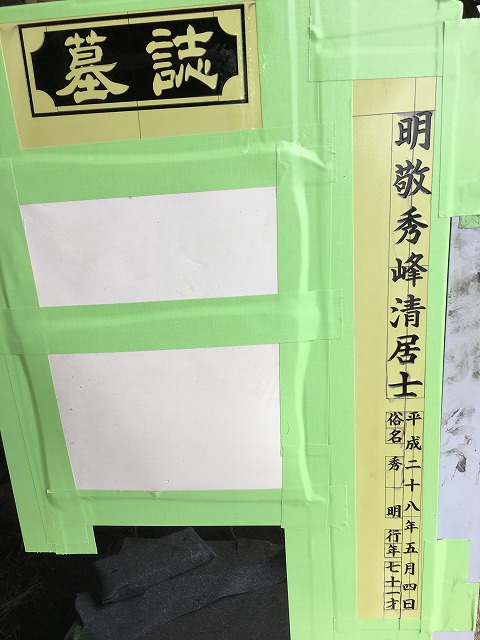 誌墓
明敬秀峰清居士
平成二十八年五月四日
俗名 秀明 行年七十一才